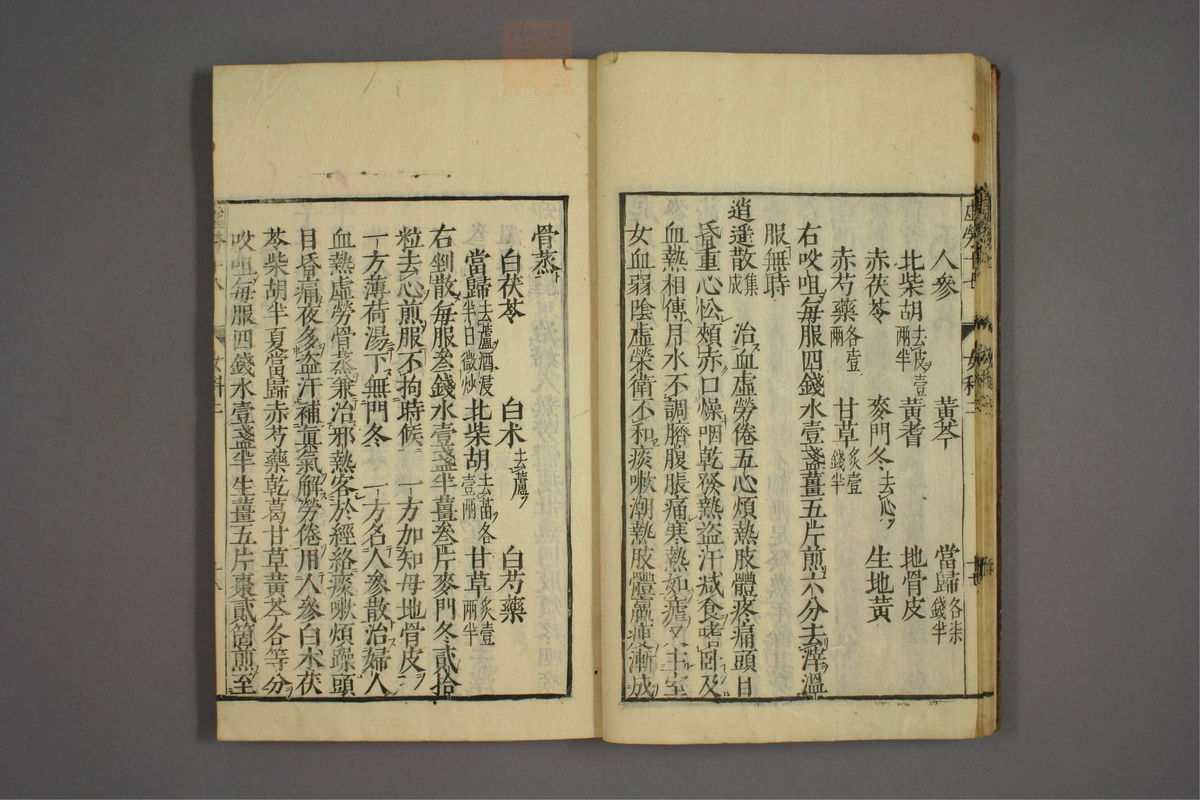 人參　黃芩　當歸各柒錢半
北柴胡去皮壹兩半　黃耆　地骨皮
赤茯苓　麥門冬去心　生地黃
赤芍藥各壹兩　甘草炙壹錢半
右㕮咀每服四錢水壹盞薑五片煎六分去滓溫
服無時
逍遥散集成　治血虛勞倦五心煩熱肢體疼痛頭目
昏重心忪頰赤口燥咽乾發熱盜汗減食嗜卧及
血熱相傳月水不調臍腹脹痛寒熱如瘧又主室
女血弱陰虛榮衛不和痰嗽潮熱肢體羸瘦漸成
骨蒸
白茯苓　白术去蘆　白芍藥
當歸去蘆酒浸半日微炒　北柴胡去苗各壹兩　甘草炙壹兩半
右剉散每服叁錢水壹盞半薑叁片麥門冬貳拾
粒去心煎服不拘時候　一方加知母地骨皮
一方薄荷湯下無門冬　一方名人參散治婦人
血熱虛勞骨蒸兼治邪熱客於經絡痰嗽煩躁頭
目昏痛夜多盜汗補眞氣解勞倦用人參白术茯
苓柴胡半夏當歸赤芍藥乾葛甘草黃芩各等分
㕮咀每服四錢水壹盞半生薑五片棗貳箇煎至